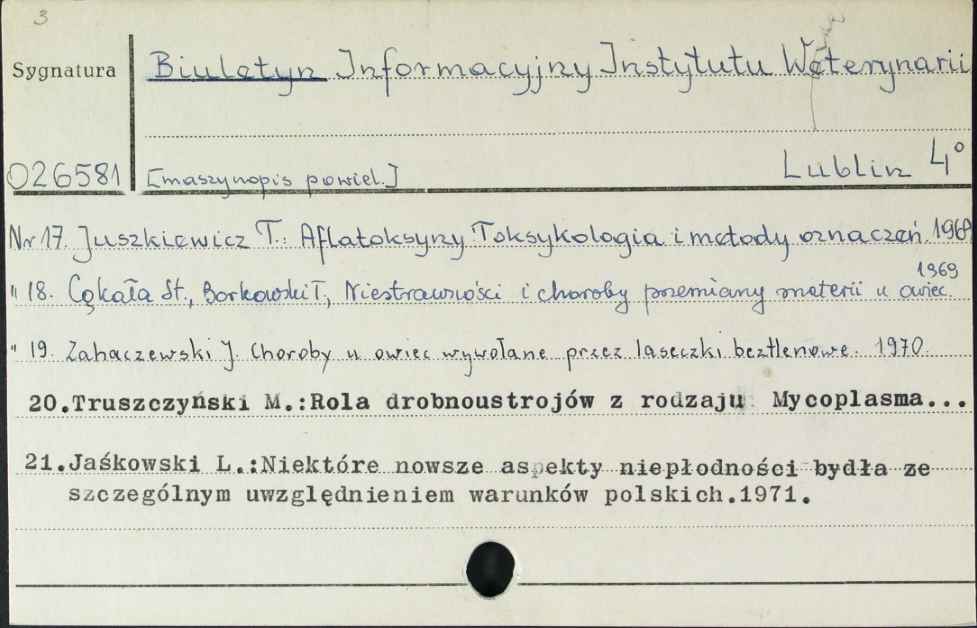 3
Sygnatura
Biuletyn Informacyjny Instytutu Weterynarii
026581
[maszynopis powiel.]
Lublin 4°
Nr 17. Juszkiewicz T.: Aflatoksyny Toksykologia i metody oznaczeń. 1968
" 18. Cąkała St., Borkowski T., Niestrawności i choroby przemiany materii u owiec. 1969
" 19. Zahaczewski J. Choroby u owiec wywołane przez laseczki beztlenowe. 1970.
20.Truszczyński M.:Rola drobnoustrojów z rodzaju Mycoplasma...
21.Jaśkowski L.:Niektóre nowsze aspekty niepłodności bydła ze
szczególnym uwzględnieniem warunków polskich.1971.